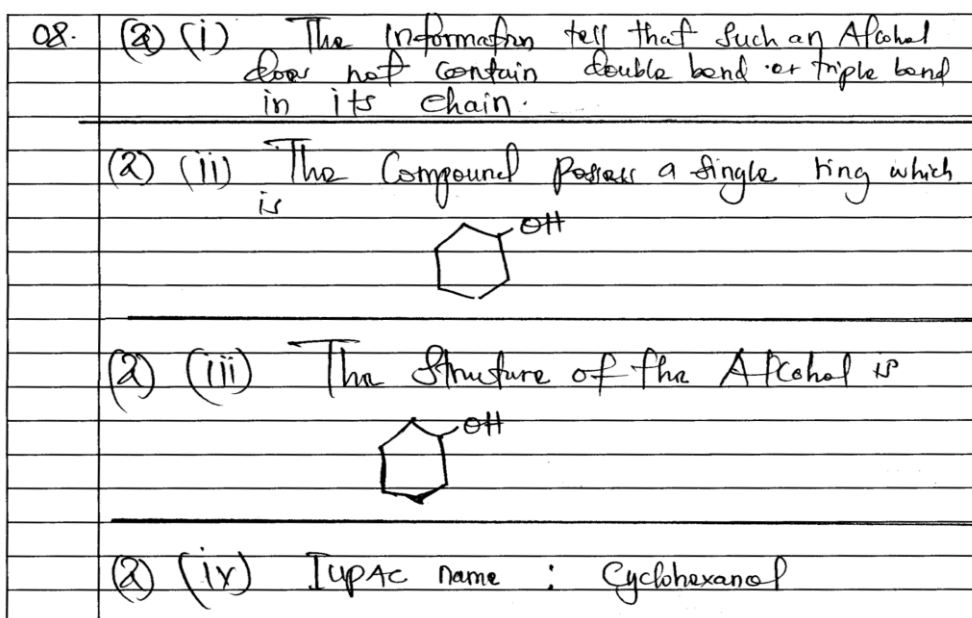 08. (a) (i) The information tell that such an Alcohol
does not contain double bond or triple bond
in its chain.
(a) (ii) The Compound Possess a single ring which
is
OH
(a) (iii) The Structure of the Alcohol is
OH
(a) (iv) IUPAC name : Cyclohexanol